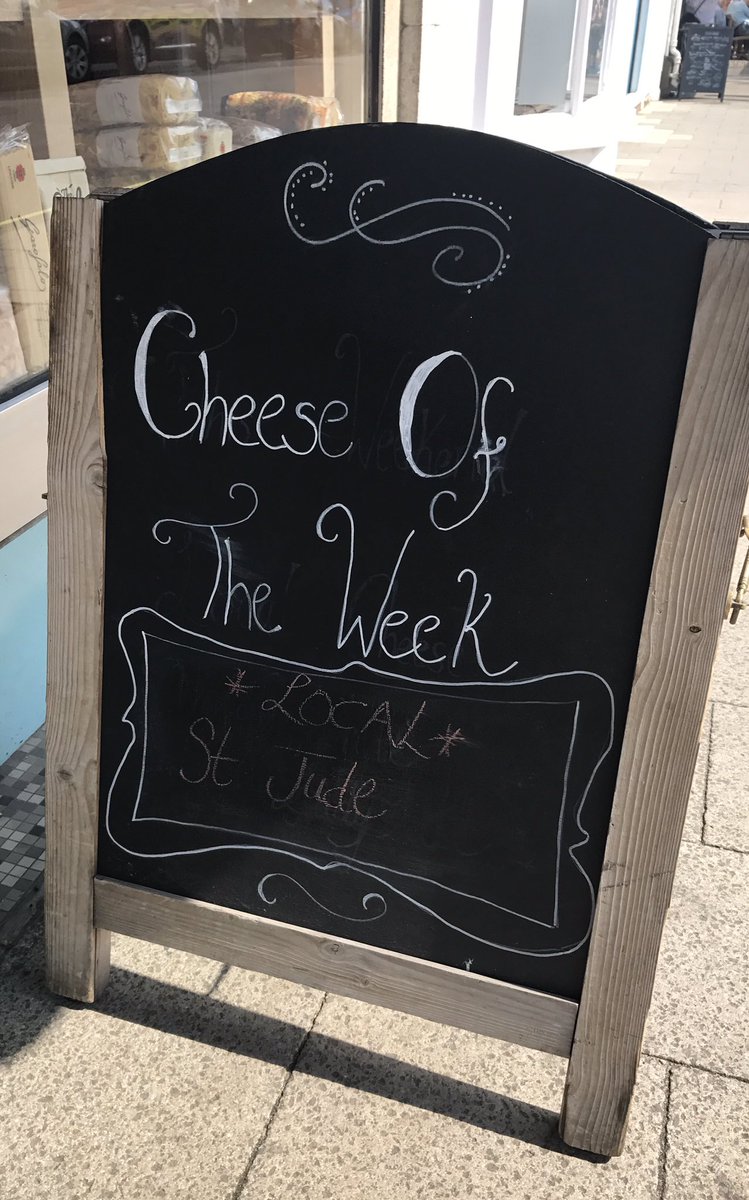 Cheese Of
The Week
*LOCAL*
St Jude